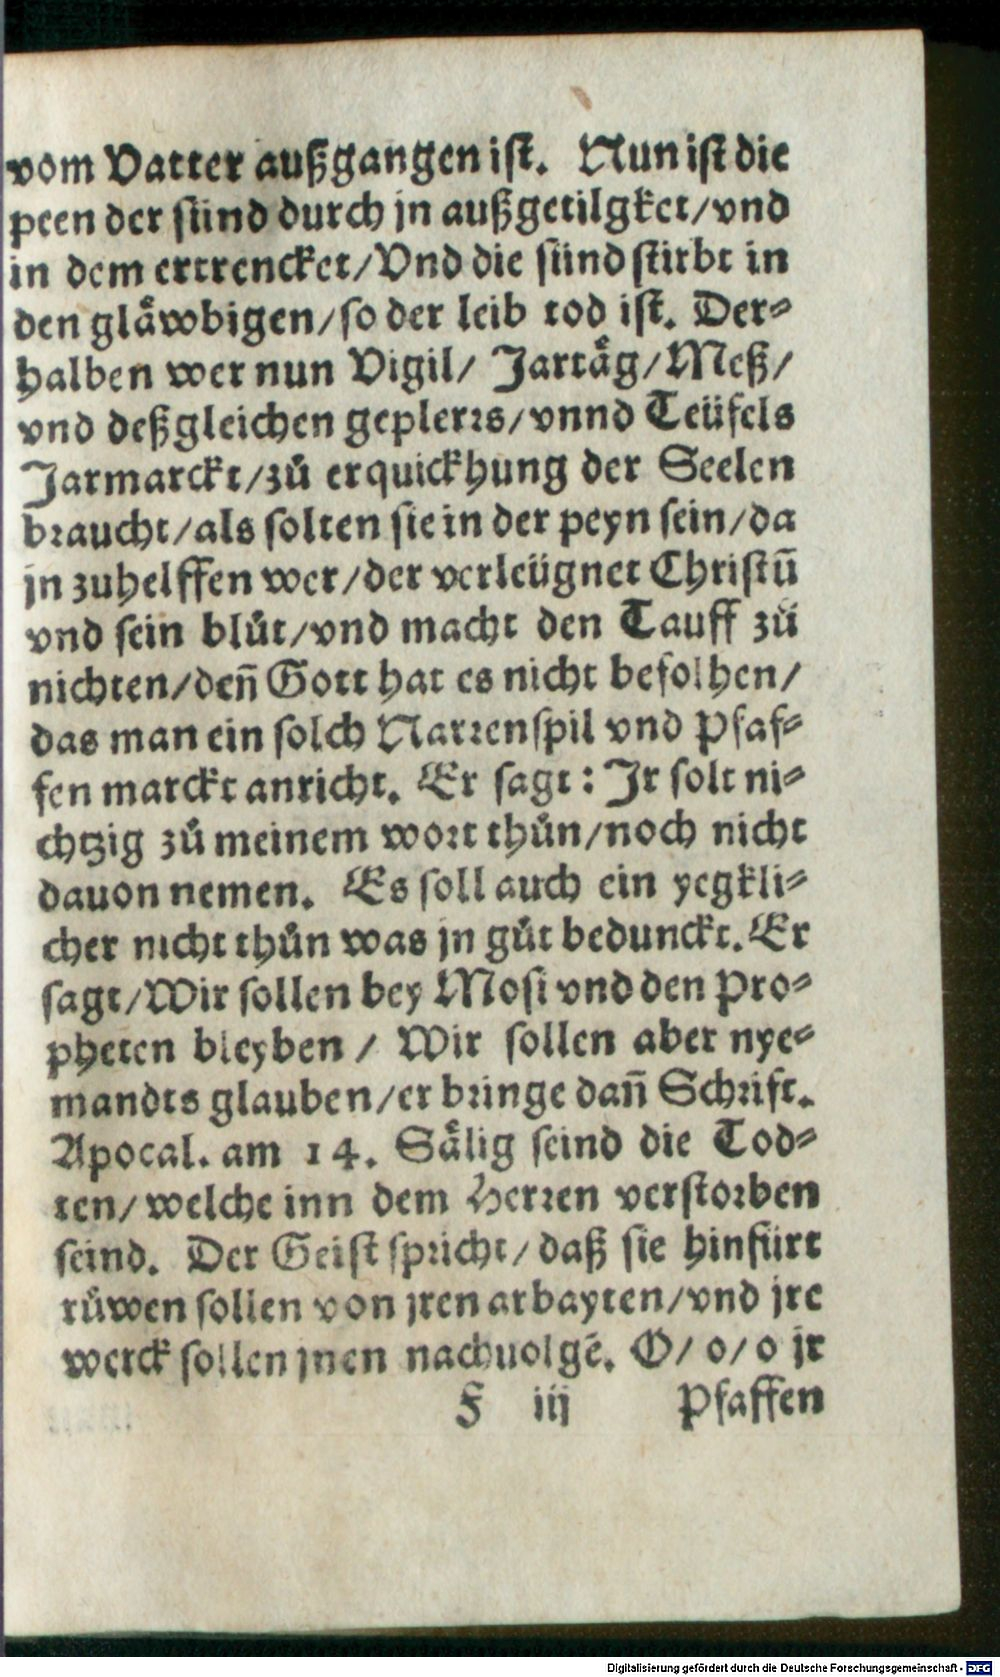 vom Vatter außgangen ist. Nun ist die
peen der sünd durch jn außgetilgket/vnd
in dem ertrencket/Vnd die sünd stirbt in
den glaͤwbigen/so der leib tod ist. Der⸗
halben wer nun Vigil/ Jartaͤg/Meß/
vnd deßgleichen geplerrs/vnnd Teüfels
Jarmarckt/zuͦ erquickhung der Seelen
braucht/als solten sie in der peyn sein/da
jn zuhelffen wer/der verleügnet Christū
vnd sein bluͦt/vnd macht den Tauff zuͦ
nichten/deñ Gott hat es nicht befolhen/
das man ein solch Narrenspil vnd Pfaf⸗
fen marckt anricht. Er sagt: Jr solt ni⸗
chtzig zuͦ meinem wort thuͦn/noch nicht
dauon nemen. Es soll auch ein yegkli⸗
cher nicht thuͦn was jn guͦt bedunckt. Er
sagt/Wir sollen bey Mosi vnd den Pro⸗
pheten bleyben / Wir sollen aber nye⸗
mandts glauben/er bringe dañ Schrift.
Apocal. am 14. Saͤlig seind die Tod⸗
ten/welche inn dem Herren verstorben
seind. Der Geist spricht/daß sie hinfürt
ruͦwen sollen von jren arbayten/vnd jre
werck sollen jnen nachuolgē. O/o/o jr
F iij Pfaffen
Digitalisierung gefördert durch die Deutsche Forschungsgemeinschaft - DFG